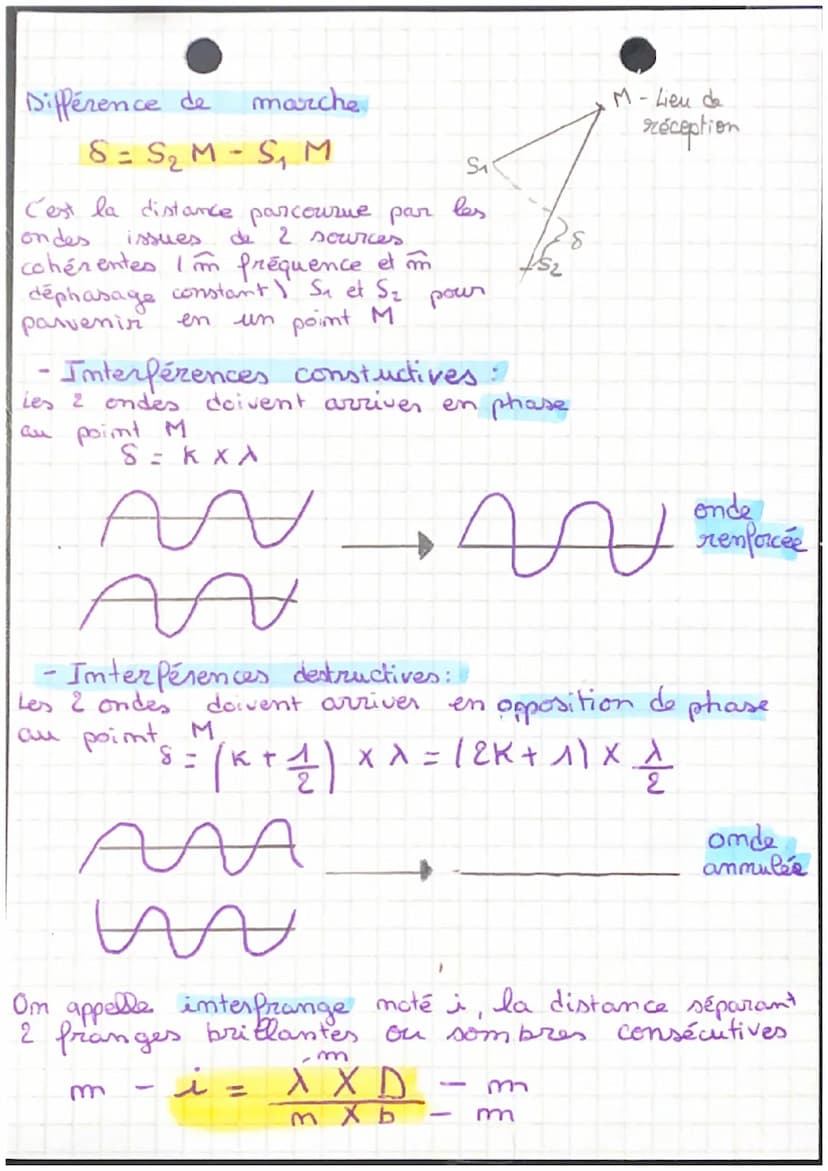 Différence de marche
M - Lieu de
réception
δ = S₂ M - S₁ M
S₁
δ
S₂
C'est la distance parcourue par les
ondes issues de 2 sources
cohérentes ( m̂ fréquence et m̂
déphasage constant) S₁ et S₂ pour
parvenir en un point M
- Interférences constuctives :
Les 2 ondes doivent arriver en phase
au point M
δ = k x λ
onde
renforcée
- Interférences destructives:
Les 2 ondes doivent arriver en opposition de phase
au point M
δ = (k + 1/2) x λ = (2k + 1) x λ/2
onde
annulée
On appelle interfrange noté i, la distance séparant
2 franges brillantes ou sombres consécutives
m
m - i = λ X D - m
n X b - m